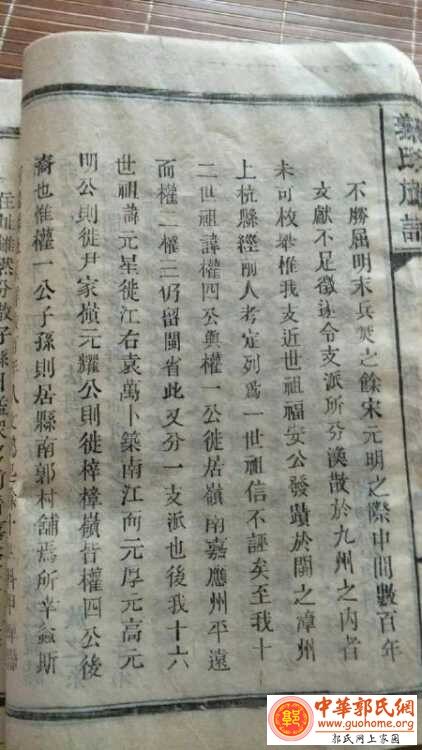 氏族譜
不勝屈明末兵燹之餘宋元明之際中間數百年
文獻不足徵遂令支派所分渙散於九州之內者
未可枚舉惟我支近世祖福安公發蹟於閩之漳州
上杭縣經前人考定列為一世祖信不誣矣至我十
二世祖諱權四公與權一公徙居嶺南嘉應州平遠
而權二權二仍留閩省此又分一支派也後我十六
世祖諱元星徙江右袁萬卜築南江而元厚元高元
明公則徙尹家嶺元耀公則徙樟樟嶺皆權四公後
裔也惟權一公子孫則居縣南郭村舖焉所幸螽斯
中華郭氏網
www.guohome.org
郭氏网上家园